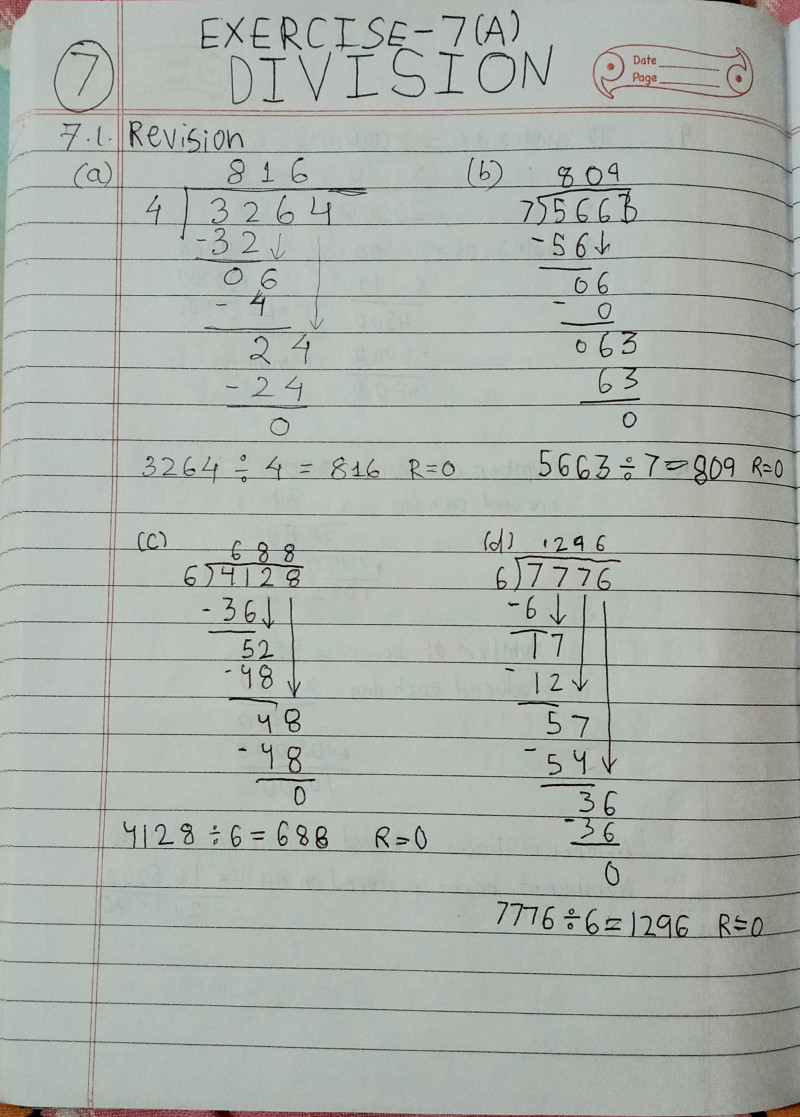 EXERCISE-7(A)
7 DIVISION
Date
Page
7.1. Revision
(a) 816
4 3264
-32
06
-4
24
-24
0
3264 ÷ 4 = 816 R=0
(b) 809
7)5663
-56
06
- 0
063
63
0
5663 ÷ 7 = 809 R=0
(c) 688
6)4128
-36
52
-48
48
-48
0
4128 ÷ 6 = 688 R=0
(d) 1296
6)7776
-6
17
-12
57
-54
36
-36
0
7776 ÷ 6 = 1296 R=0